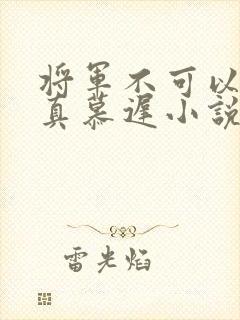 将军不可以
真慕遅小説
雷光焰